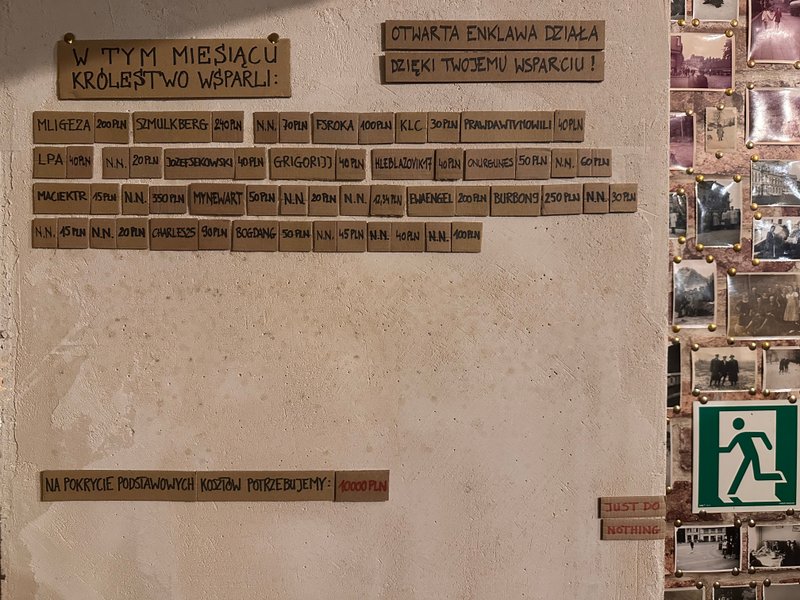 W TYM MIESIĄCU
KRÓLESTWO WSPARLI:
OTWARTA ENKLAWA DZIAŁA
DZIĘKI TWOJEMU WSPARCIU!
MLIGEZA 200 PLN SZMULKBERG 240 PLN N.N. 70 PLN FSROKA 100 PLN KLC 30 PLN PRAWDAWTVMOWILI 40 PLN
LPA 40 PLN N.N. 20 PLN JOZEFSEKOWSKI 40 PLN GRIGORIJJ 40 PLN HLEBLAZOVIK17 40 PLN ONURGUNES 50 PLN N.N. 60 PLN
MACIEKTR. 15 PLN N.N. 350 PLN MYNEWART 50 PLN N.N. 20 PLN N.N. 12,34 PLN EWAENGEL 200 PLN BURBON9 250 PLN N.N. 30 PLN
N.N. 15 PLN N.N. 20 PLN CHARLES25 90 PLN BOGDANG 50 PLN N.N. 45 PLN N.N. 40 PLN N.N. 100 PLN
NA POKRYCIE PODSTAWOWYCH KOSZTÓW POTRZEBUJEMY: 10000 PLN
JUST DO
NOTHING